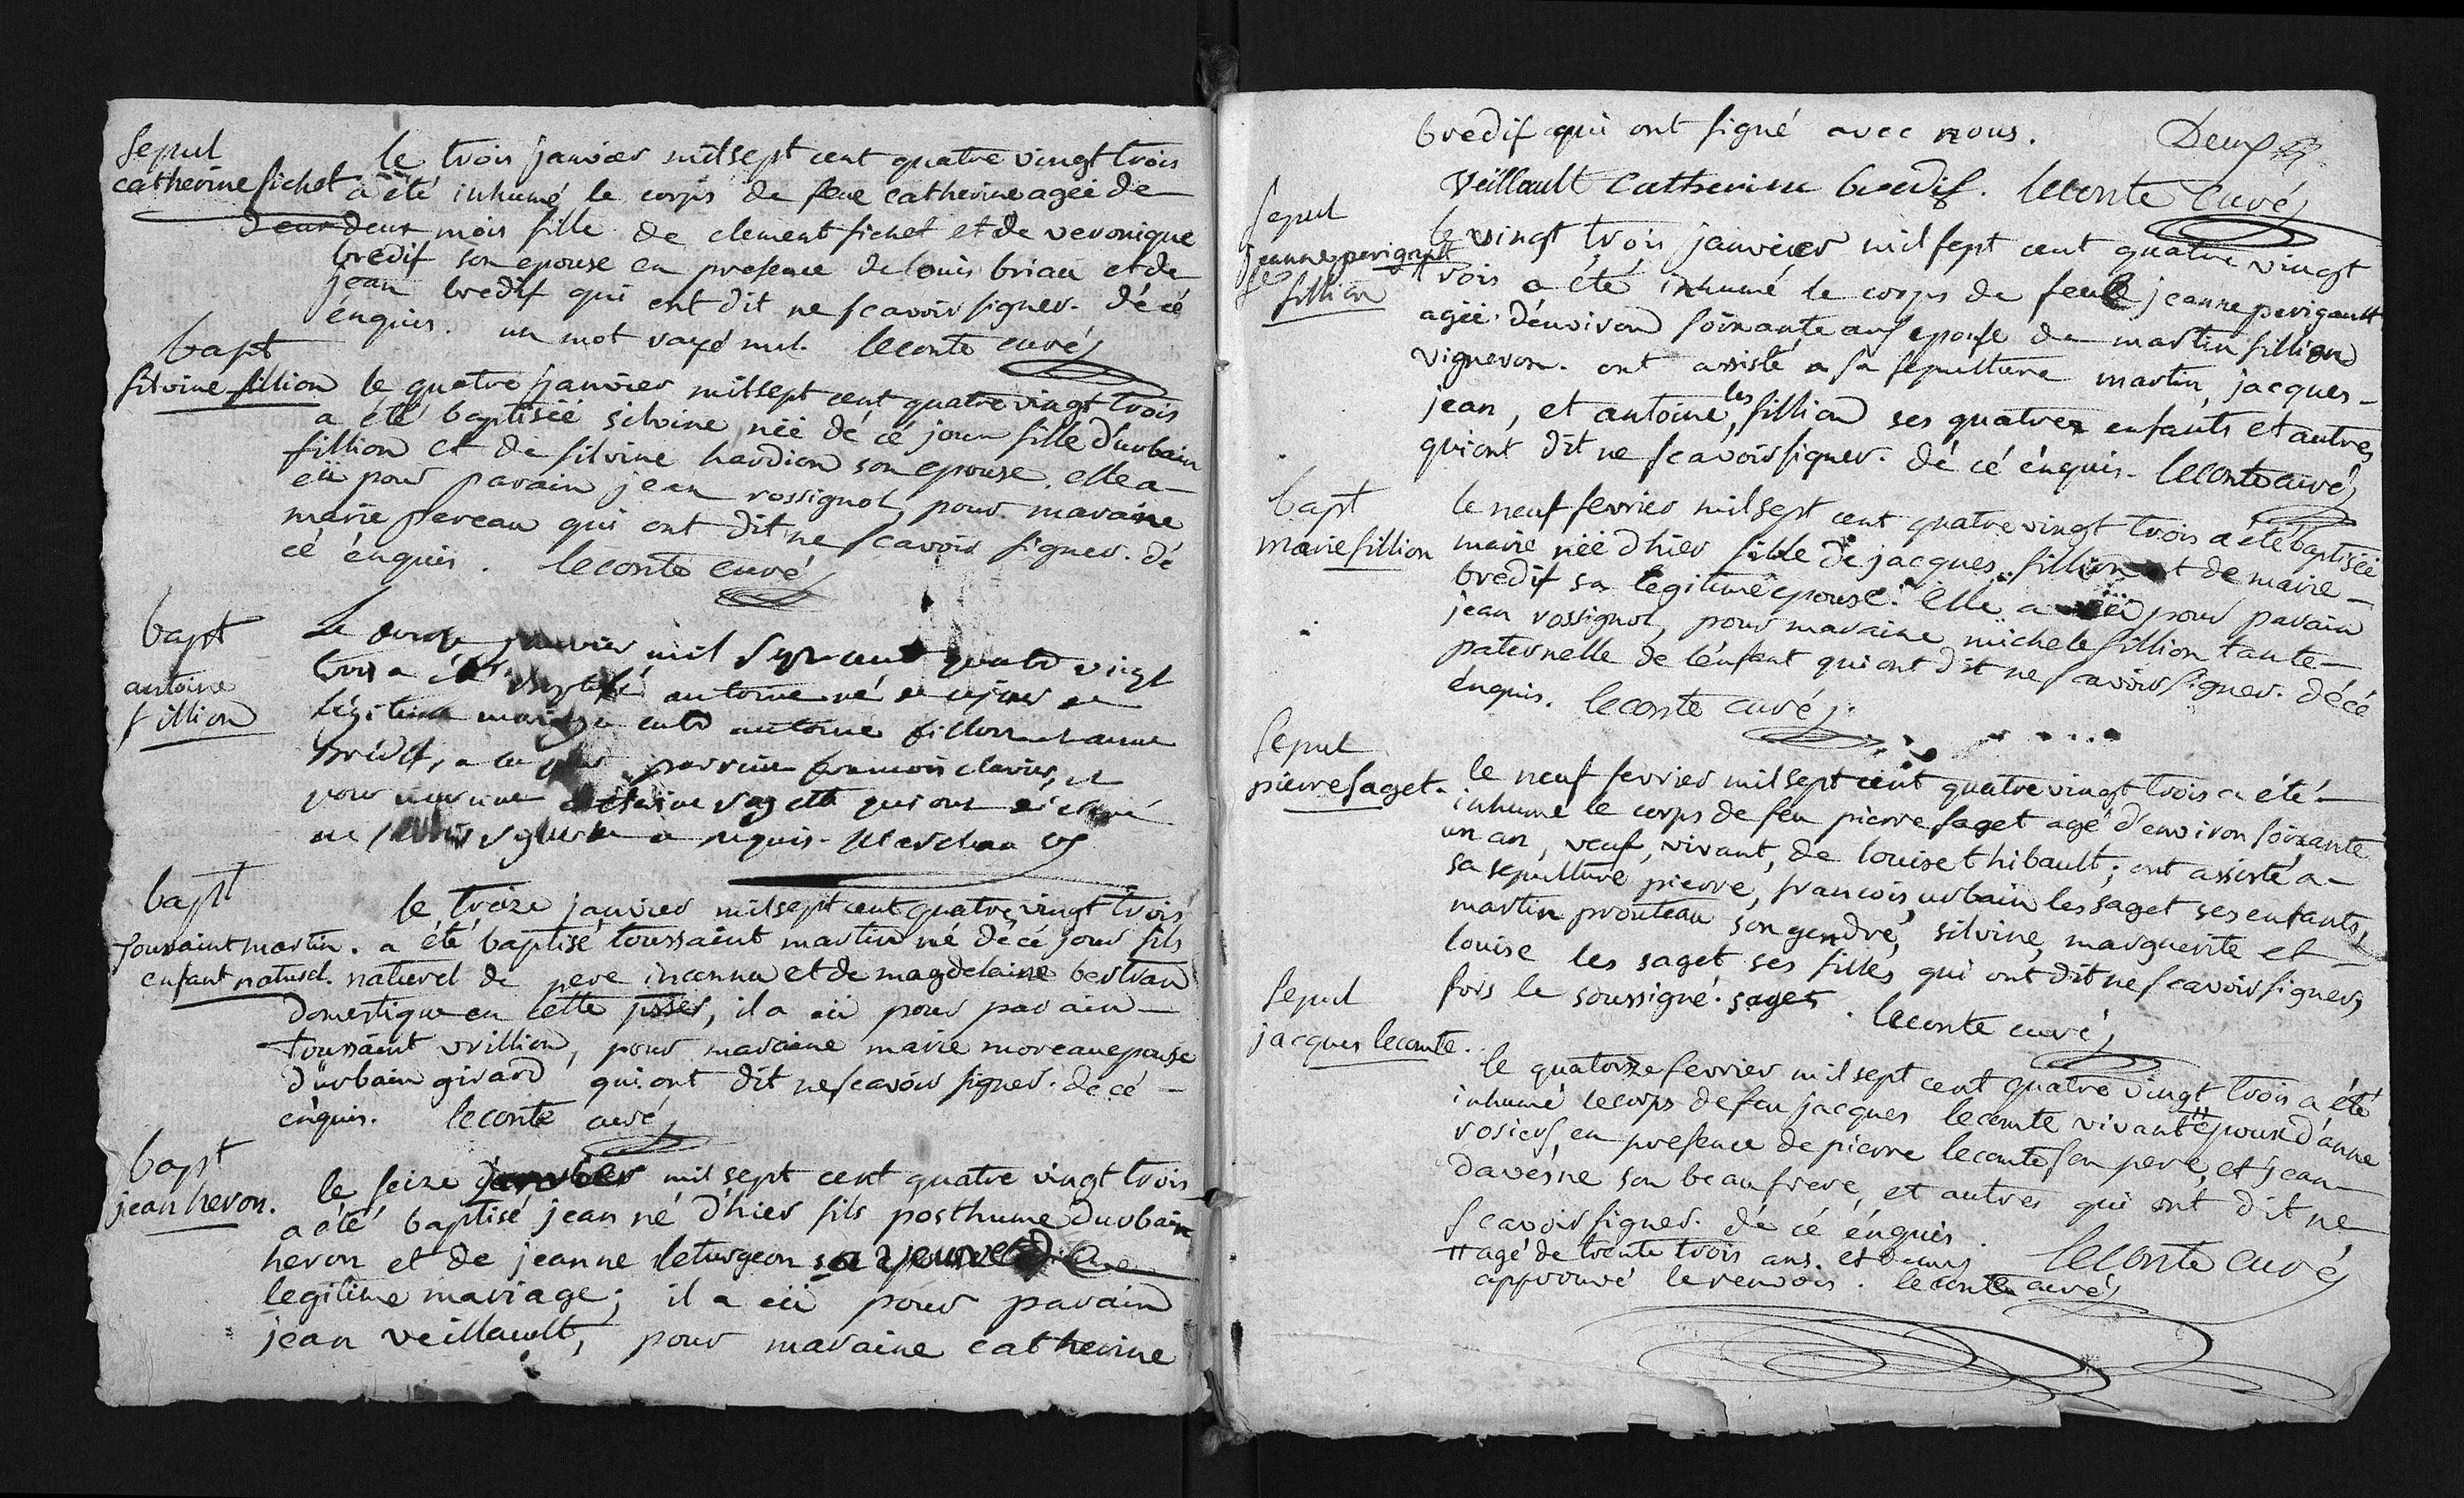 Sepul
catherine fichet
le trois janvier mil sept cent quatre vingt trois
a été inhumé le corps de feue catherine agée de
deux deux mois fille de clement fichet et de veronique
bredif son epouse en presence de louis briau et de
jean bredif qui ont dit ne scavoir signer. dé cé
énquis. un mot rayé nul. leconte curé
bapt
silvine fillion
le quatre janvier mil sept cent quatre vingt trois
a été baptisëë silvine nëë dé cé jour fille d'urbain
fillion et de silvine hardion son epouse. elle a
eü pour parain jean rossignol, pour maraine
marie pereau qui ont dit ne scavoir signer. dé
cé énquis. leconte curé
bapt
antoine
fillion
Le douze janvier mil sept cent quatre vingt
trois a été baptisé antoine né de ce jour en
légitime mariage entre antoine fillion et anne
bredif, a eu pour parrein francois clavier, et
pour marraine sagette qui ont déclaré
ne scavoir signer de ce requis.
bapt
toussaint martin.
enfant naturel.
le treize janvier mil sept cent quatre vingt trois
a été baptisé toussaint martin né dé cé jour fils
naturel de pere inconnu et de magdelaine bertran
domestique en cette psse, il a eü pour parain
toussaint vrillion, pour maraine marie moreau epouse
d'urbain girard qui ont dit ne scavoir signer. de cé
énquis. leconte curé
bapt
jean heron.
le seize janvier mil sept cent quatre vingt trois
a été baptisé jean né d'hier fils posthume d'urbain
heron et de jeanne leturgeon sa
legitime mariage; il a eü pour parain
jean veillault, pour maraine catherine
bredif qui ont signé avec nous.
Deux
Veillault Catherine bredif. leconte curé
Sepul
jeanne perigault
fe
fillion
le vingt trois janvier mil sept cent quatre vingt
trois a été inhumé le corps de feue jeanne perigault
agëë d'environ soixante ans epouse de martin fillion
vigneron. ont assisté a sa sepulture martin, jacques
jean, et antoine, les fillion ses quatres enfants et autres
qui ont dit ne scavoir signer. dé cé énquis. leconte curé
bapt
marie fillion
le neuf fevrier mil sept cent quatre vingt trois a été baptisëë
marie nëë d'hier fille de jacques fillion et de marie
bredif sa legitime epouse. elle a eü pour parain
jean rossignol, pour maraine michele fillion tante
paternelle de l'énfant qui ont dit ne scavoir signer. dé cé
énquis. leconte curé
Sepul
pierre saget.
le neuf fevrier mil sept cent quatre vingt trois a été
inhumé le corps de feu pierre saget agé d'environ soixante
un an, veuf, vivant, de louise thibault; ont assisté a
sa sepulture pierre, francois urbain les saget ses enfants,
martin prouteau son gendre, silvine, marguerite et
louise les saget ses filles qui ont dit ne scavoir signer,
fors le soussigné. saget. leconte curé
Sepul
jacques lecomte.
le quatorze fevrier mil sept cent quatre vingt trois a été
inhumé le corps de feu jacques lecomte vivant " epoux d'anne
rosier, en presence de pierre lecomte son pere, et jean
davesne son beau frere, et autres qui ont dit ne
scavoir signer. dé cé énquis.
leconte curé
" agé de trente trois ans. et demi
approuvé le renvois. leconte curé